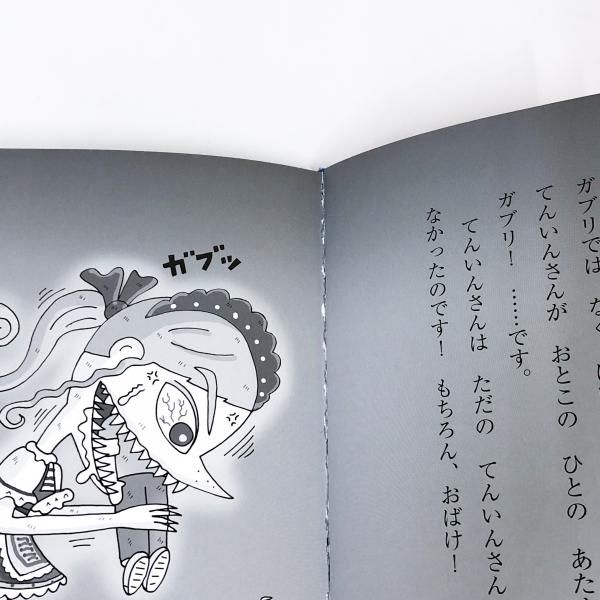 ガブリでは なく
てんいんさんが おとこの ひとの あた
ガブリ! ……です。
てんいんさんは ただの てんいんさん
なかったのです! もちろん、おばけ!
ガブッ